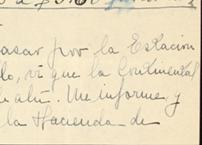 asar por la Estación
do, ví que la Continental
ahí. Me informe y
la Hacienda de